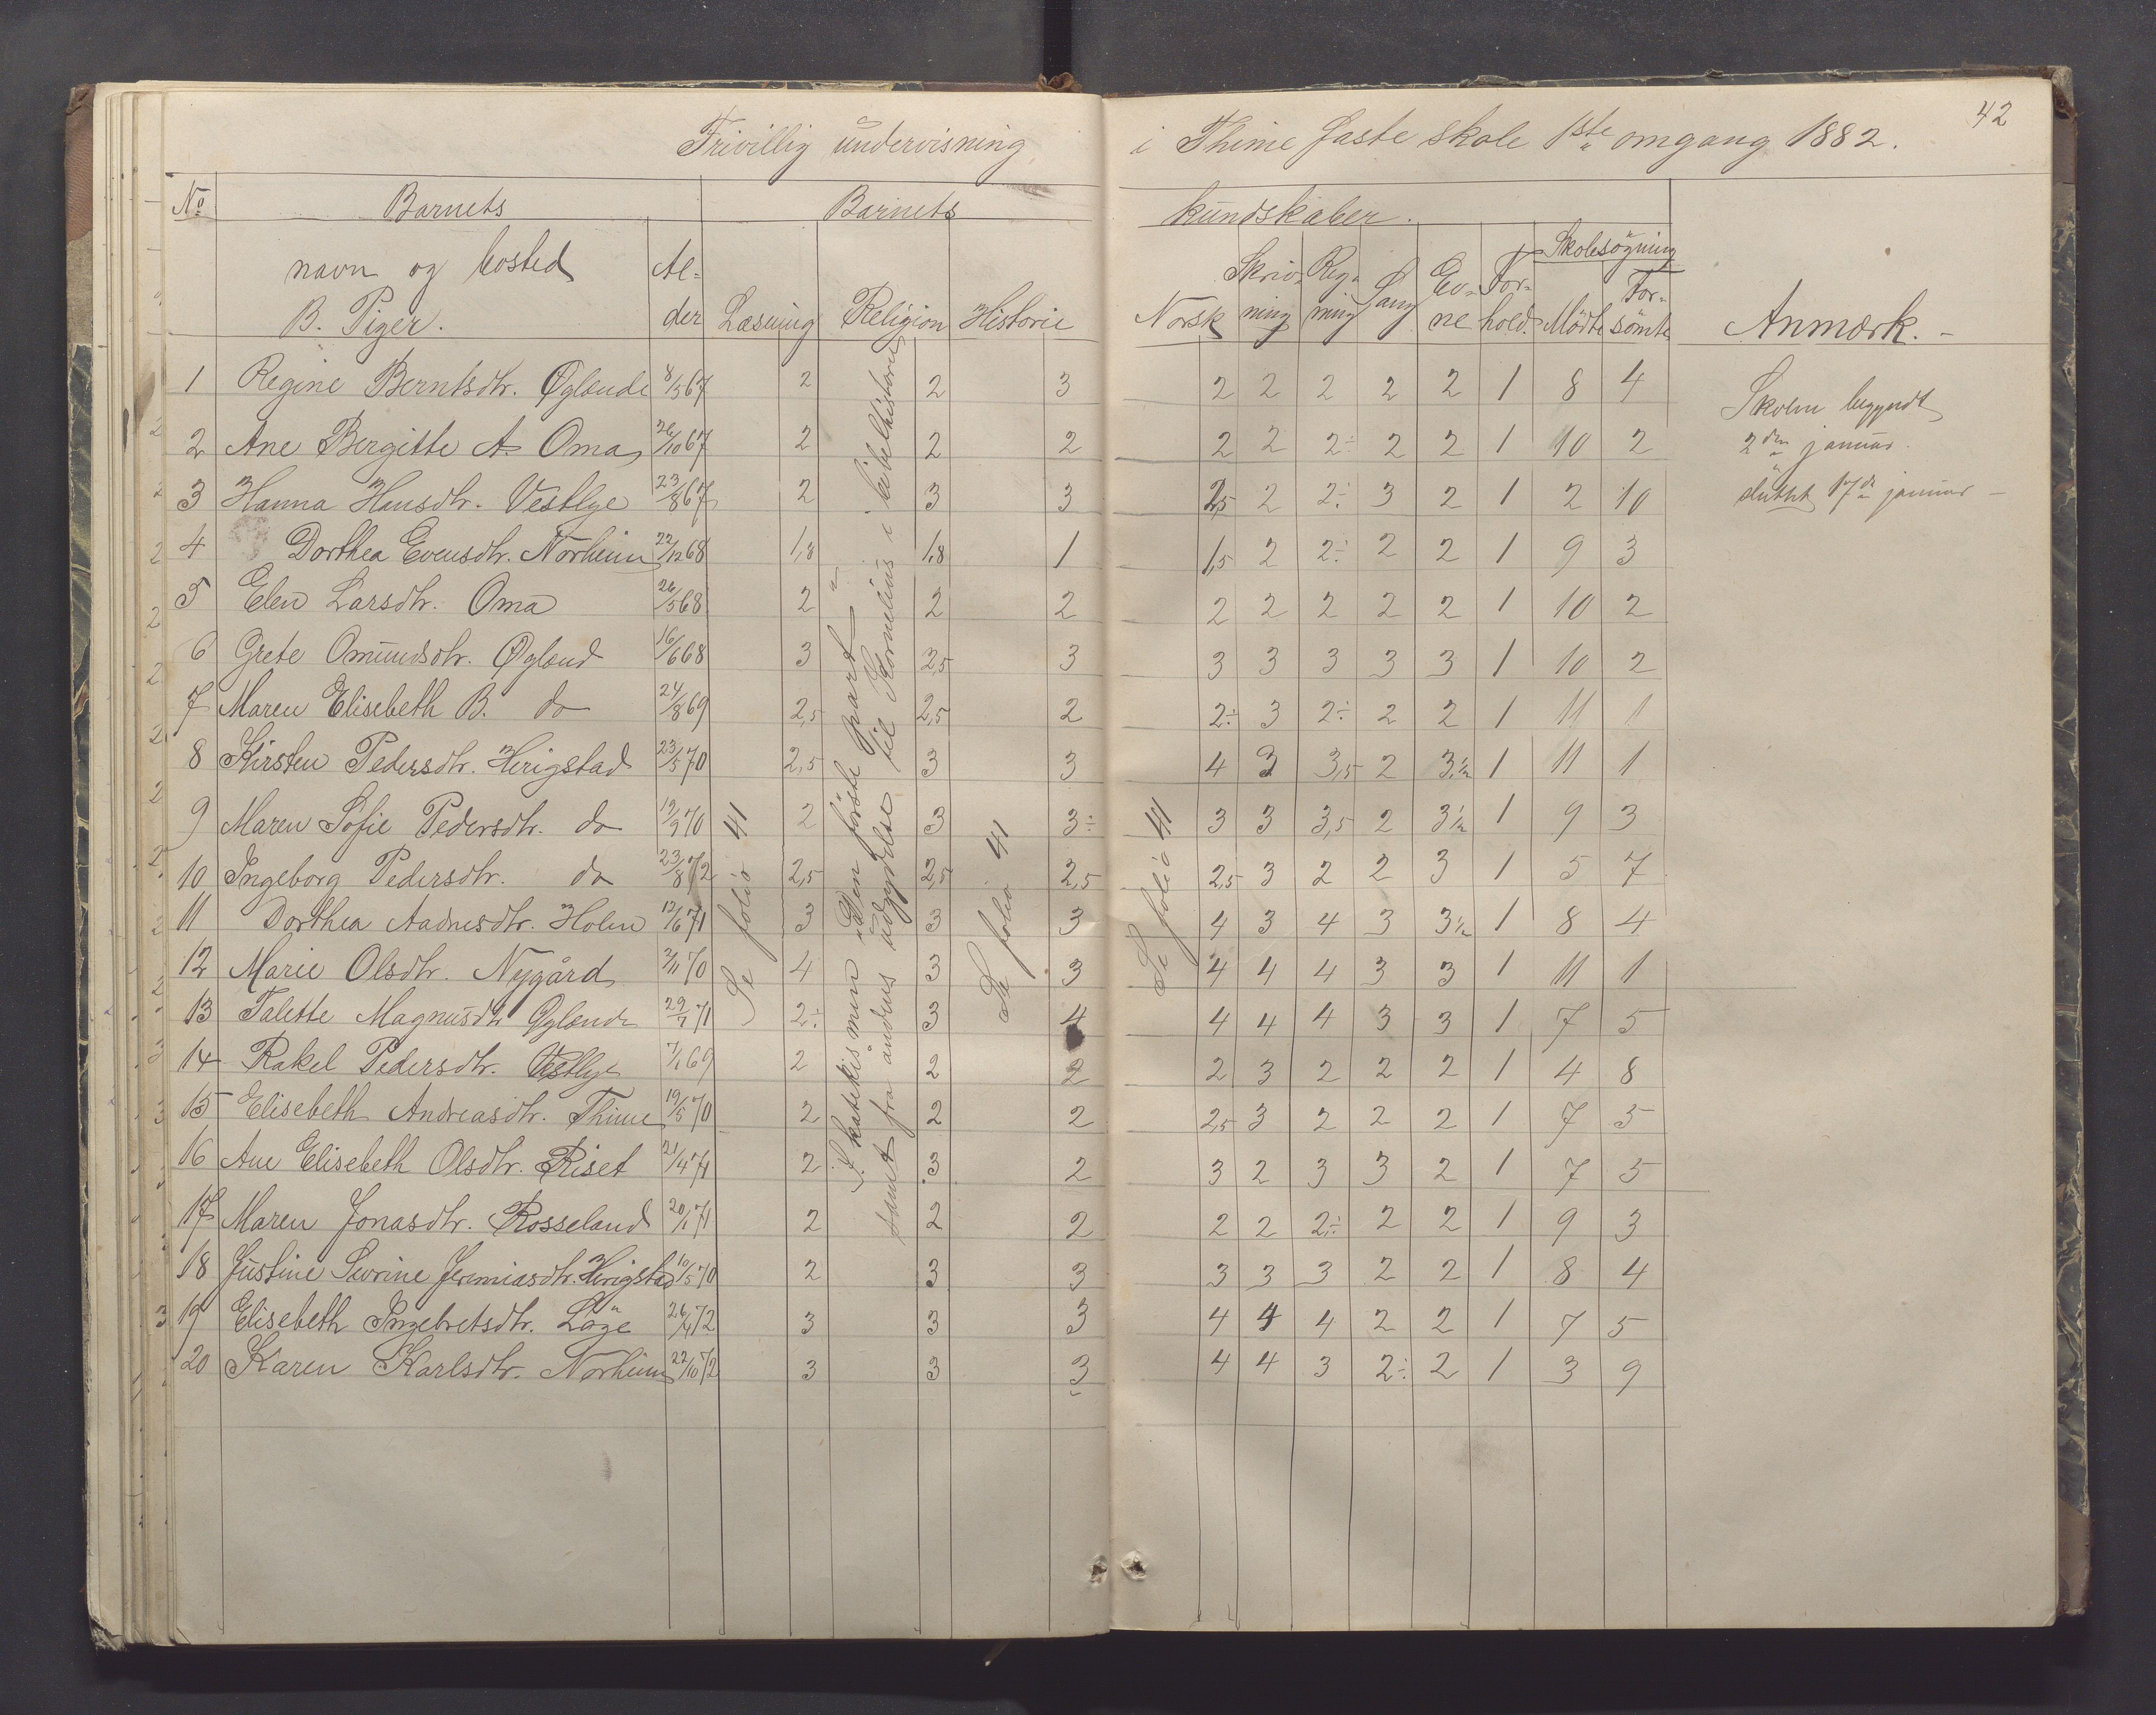 42
Frivillig undervisning i Thime faste skole 1ste omgang 1882.
No Barnets Barnets kundskaber.
navn og bosted Al- Skriv- Reg- Ev- For- Skolesøgning
B. Piger. der Læsning Religion Historie Norsk ning ning Sang ne hold. Mödte For-sömte Anmærk.
1 Regine Berntsdtr. Øglænde 8/5 67 2 2 3 2 2 2 2 2 1 8 4
2 Ane Bergitte A Oma 26/10 67 2 2 2 2 2 2÷ 2 2 1 10 2
3 Hanna Hansdtr. Vestlye 23/8 67 2 3 3 2,5 2 2÷ 3 2 1 2 10
4 Dorthea Evensdtr. Norheim 22/12 68 1,8 1,8 1 1,5 2 2÷ 2 2 1 9 3
5 Elen Larsdtr. Oma 26/5 68 2 2 2 2 2 2 2 2 1 10 2
6 Grete Omundsdtr. Øglænd 16/6 68 3 2,5 3 3 3 3 3 3 1 10 2
7 Maren Elisebeth B. do 24/8 69 2,5 2,5 2 2÷ 3 2÷ 2 2 1 11 1
8 Kirsten Pedersdtr. Herigstad 23/5 70 2,5 3 3 4 3 3,5 2 3½ 1 11 1
9 Maren Sofie Pedersdtr. do 19/9 70 2 3 3÷ 3 3 3,5 2 3½ 1 9 3
10 Ingeborg Pedersdtr. do 23/8 72 2,5 2,5 2,5 2,5 3 2 2 3 1 5 7
11 Dorthea Aadnesdtr. Holen 12/6 71 3 3 3 4 3 4 3 3½ 1 8 4
12 Marie Olsdtr. Nygård 2/11 70 4 3 3 4 4 4 3 3 1 11 1
13 Talette Magnusdtr Øglænde 29/7 71 2÷ 3 4 4 4 4 3 3 1 7 5
14 Rakel Pedersdtr. Vestlye 7/1 69 2 2 2 2 3 2 2 2 1 4 8
15 Elisebeth Andreasdtr. Thime 19/5 70 2 2 2 2,5 3 2 2 2 1 7 5
16 Ane Elisebeth Olsdtr. Riset 21/4 71 2 3 2 3 2 3 3 2 1 7 5
17 Maren Jonasdtr. Rosseland 20/1 71 2 2 2 2 2 2÷ 2 2 1 9 3
18 Justine Sevrine Jeremiasdtr. Herigstad 10/5 70 2 3 3 3 3 3 2 2 1 8 4
19 Elisebeth Ingebretsdtr. Löge 26/4 72 3 3 3 4 4 4 2 2 1 7 5
20 Karen Karlsdtr. Norheim 22/10 72 3 3 3 4 4 3 2÷ 2 1 3 9
Se folio 41
I katekismen "Den første part"
samt fra åndens udgydelse til Kornelius i bibelhistorie
Se folio 41
Se folio 41
Skolen begyndt
2den januar
sluttet 17de januar